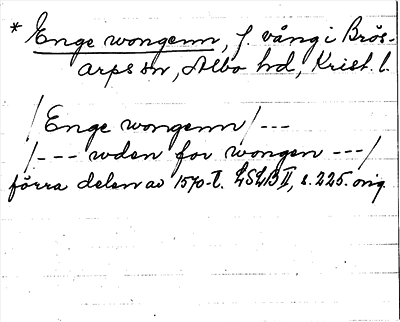 * Enge wongenn, f. vång i Brös-
arps sn, Albo hd, Krist. l.
/Enge wongenn/ ---
/--- uden for wongen ---/
förra delen av 1570-t. LSLB II, s. 225. orig.